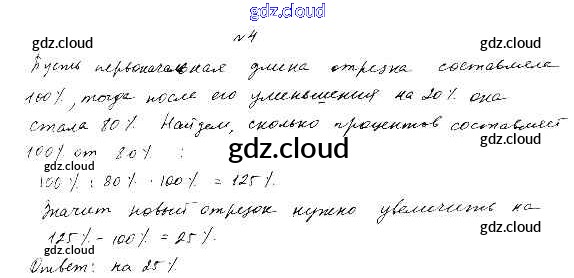 gdz.cloud
№4
gdz.cloud gdz.cloud
Пусть первоначальная длина отрезка составляла
100%, тогда после его уменьшения на 20% она
стала 80%. Найдем, сколько процентов составляет
100% от 80% :
gdz.cloud
gdz.cloud gdz.cloud
100% : 80% · 100% = 125%.
Значит новый отрезок нужно увеличить на
125% - 100% = 25%.
gdz.cloud gdz.cloud
Ответ: на 25%